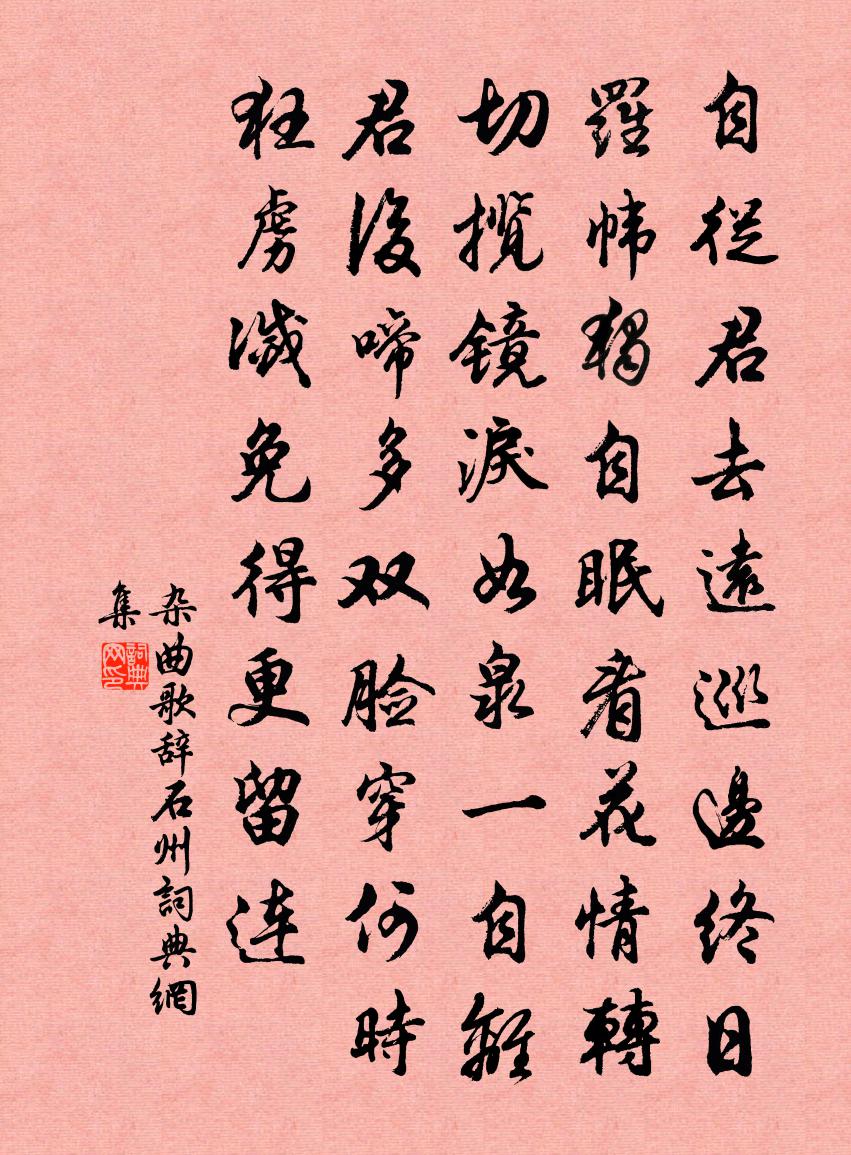 自從君去遠巡邊終日
羅幃獨自眠看花情轉
切攬鏡淚如泉一自離
君後啼多双臉穿何時
狂虜滅免得更留連
杂曲歌辞石州詞典網
集
詞典網印